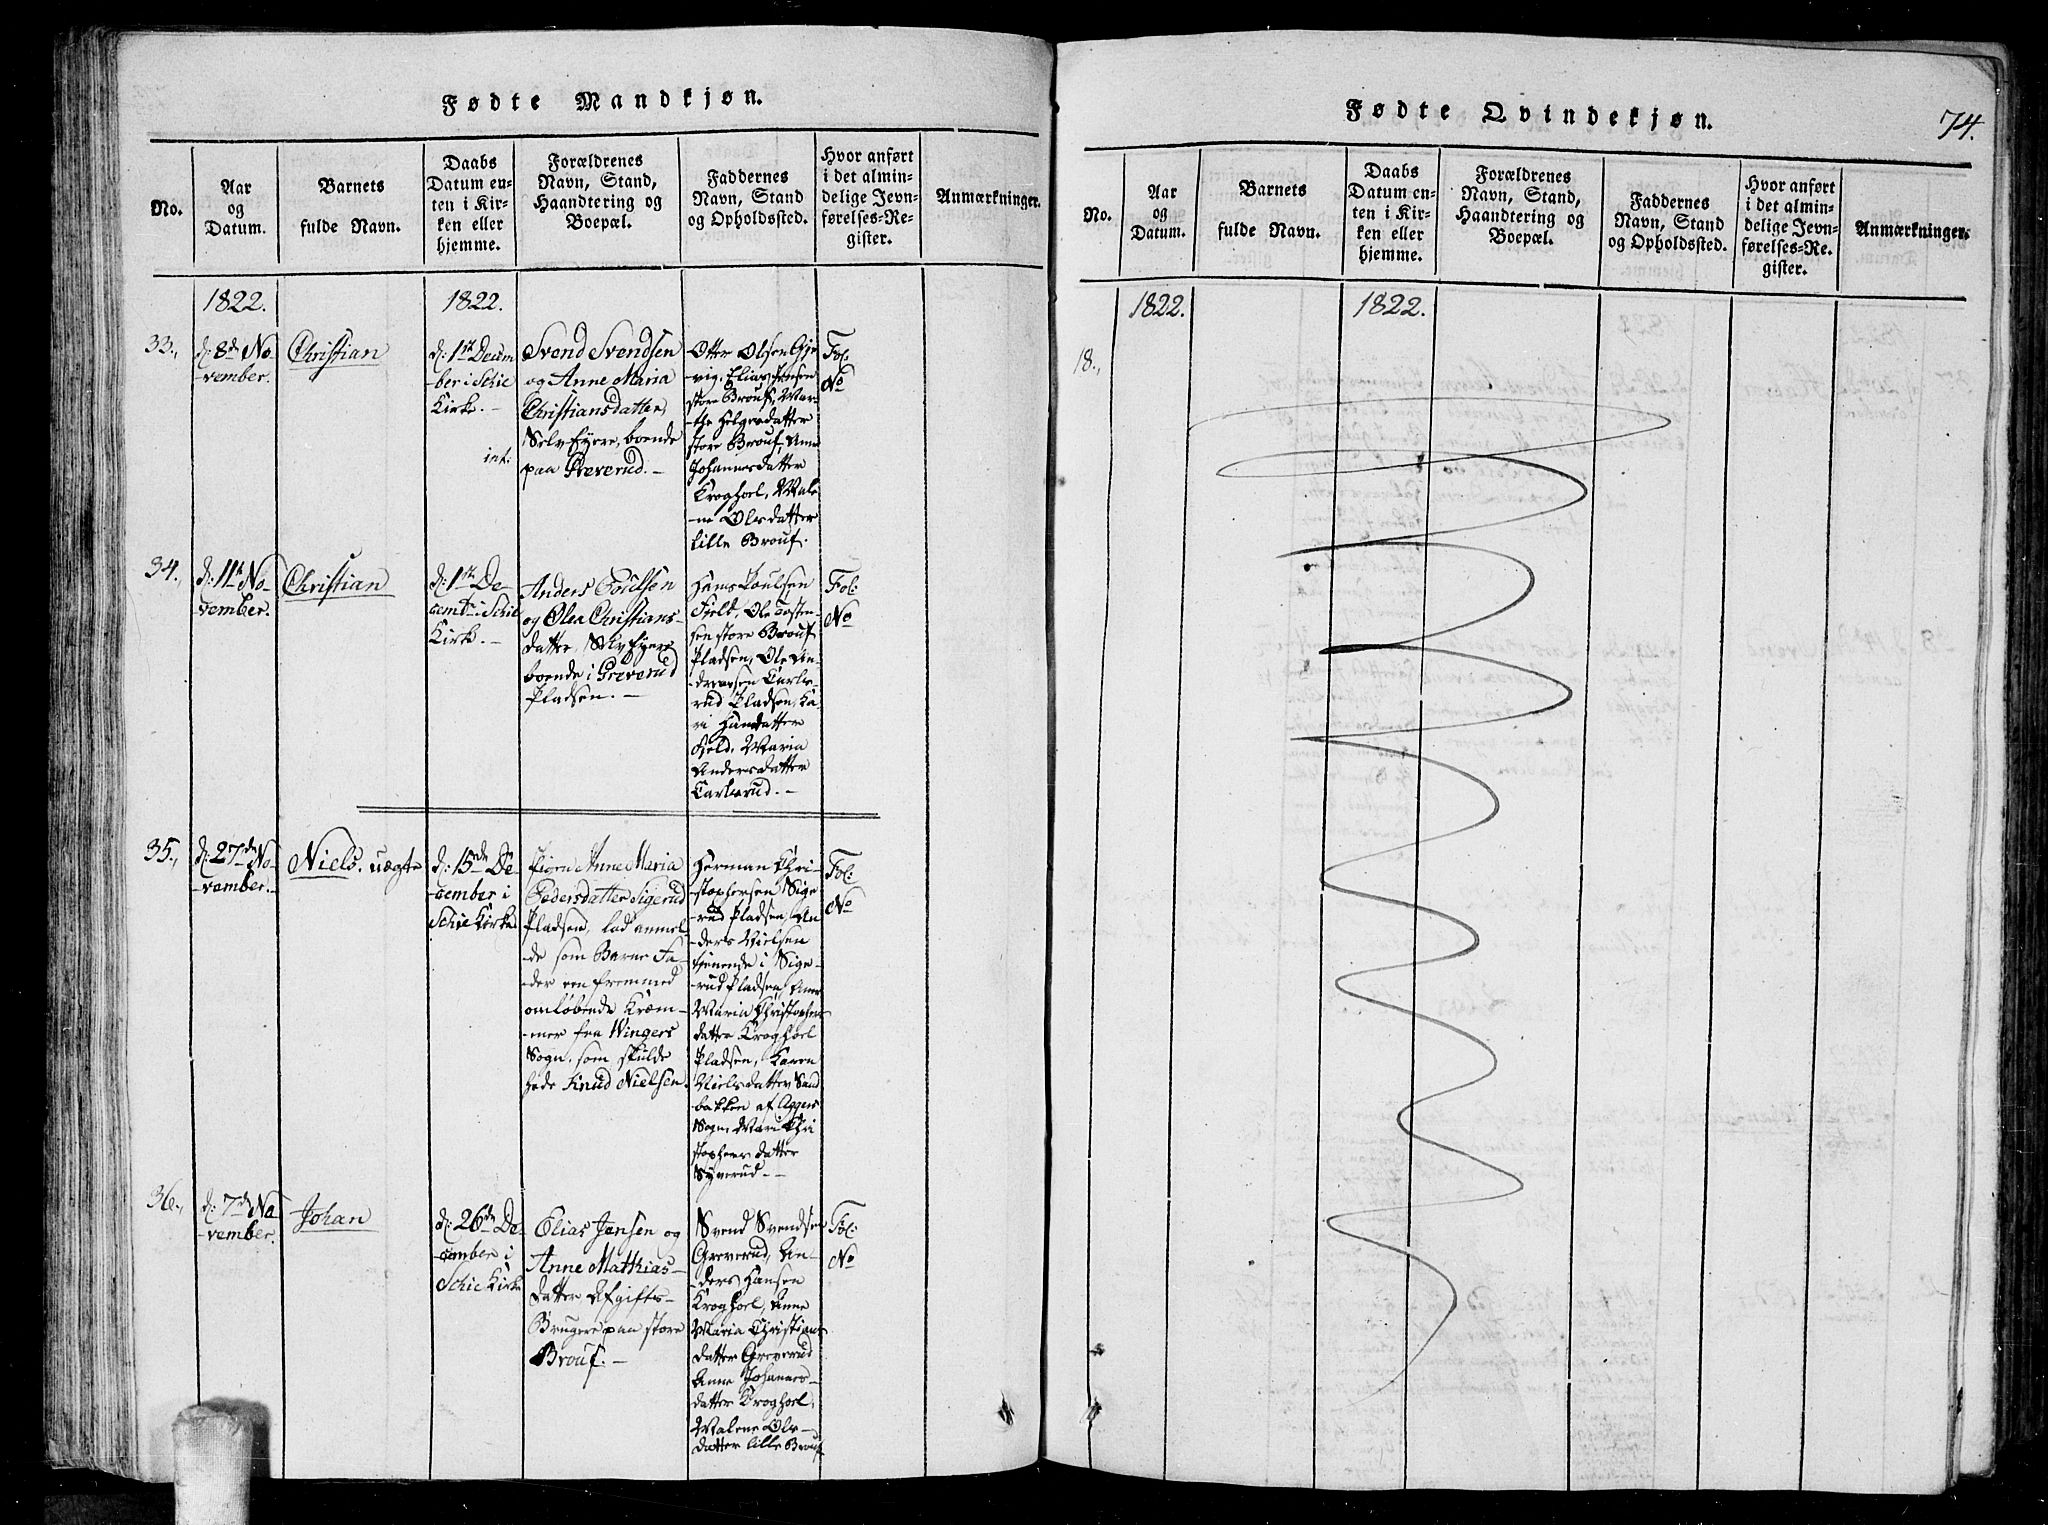 Fødte Mandkjøn.
No.
Aar
og
Datum.
Barnets
fulde Navn.
Daabs
Datum en-
ten i Kir-
ken eller
hjemme.
Forældrenes
Navn, Stand,
Haandtering og
Boepæl.
Faddernes
Navn, Stand
og Opholdssted.
Hvor anført
i det almin-
delige Jevn-
førelses-Re-
gister.
Anmærkninger.
1822.
1822.
33.,
d: 8de No-
vember.
Christian
d: 1ste Decem
ber i Schie
Kirke. —
int:
Svend Svendsen
og Anne Maria
Christiansdatter,
SelvEyere, boende
paa Greverud. —
Otter Olsen Gje-
vig, Elias Jensen
store Brouf, Mar-
the Helgesdatter
store Brouf, Anne
Johannesdatter
Kroghoel, Male-
ne Olsdatter
lille Brouf.
Fol:
No
34.,
d: 11te No-
vember.
Christian
d: 1ste De-
cembr i Schie
Kirke. —
Anders Poulsen
og Olea Christians-
datter, SelvEyere
boende i Greverud
Pladsen. —
Hans Poulsen
Fjeld, Ole Tosten-
sen store Brouf
Pladsen, Ole An-
dreasen Carls-
rud Pladsen, Ka-
ri Hansdatter
Field, Maria
Andersdatter
Carlsrud. —
Fol:
No
35.,
d: 27de No-
vember.
Niels. uægte
d: 15de De-
cember i
Schie Kirke
Pigen Anne Maria
Pedersdatter Sigerud
Pladsen, lod anmel-
de som Barne Fa-
der een fremmed
omløbende Kræm-
mer fra Wingers
Sogn, som skulde
hede Knud Nielsen.
Herman Chri-
stophersen Sige-
rud Pladsen, An-
ders Nielsen
tjenende i Sige-
rud Pladsen, Anne
Maria Christophers
datter Kroghoel
Pladsen, Karen
Nielsdatter Sand
bakken af Aggers
Sogn, Mari Chri
stophers datter
Syverud. —
Fol:
No
36.,
d: 7de No-
vember.
Johan
d: 26de De-
cember i
Schie Kirke
Elias Jensen og
Anne Matthias-
datter, Afgifts-
Brugere paa store
Brouf. —
Svend Svendsen
Greverud, An-
ders Hansen
Kroghoel, Anne
Maria Christians
datter Greverud
Anne Johannes-
datter Kroghoel,
Malene Ols-
datter lille Brouf
Fol:
No
Fødte Qvindekjøn.
74.
No.
Aar
og
Datum.
Barnets
fulde Navn.
Daabs
Datum en-
ten i Kir-
ken eller
hjemme.
Forældrenes
Navn, Stand,
Haandtering og
Boepæl.
Faddernes
Navn, Stand
og Opholdssted.
Hvor anført
i det almin-
delige Jevn-
førelses-Re-
gister.
Anmærkninger.
1822.
1822.
18.,